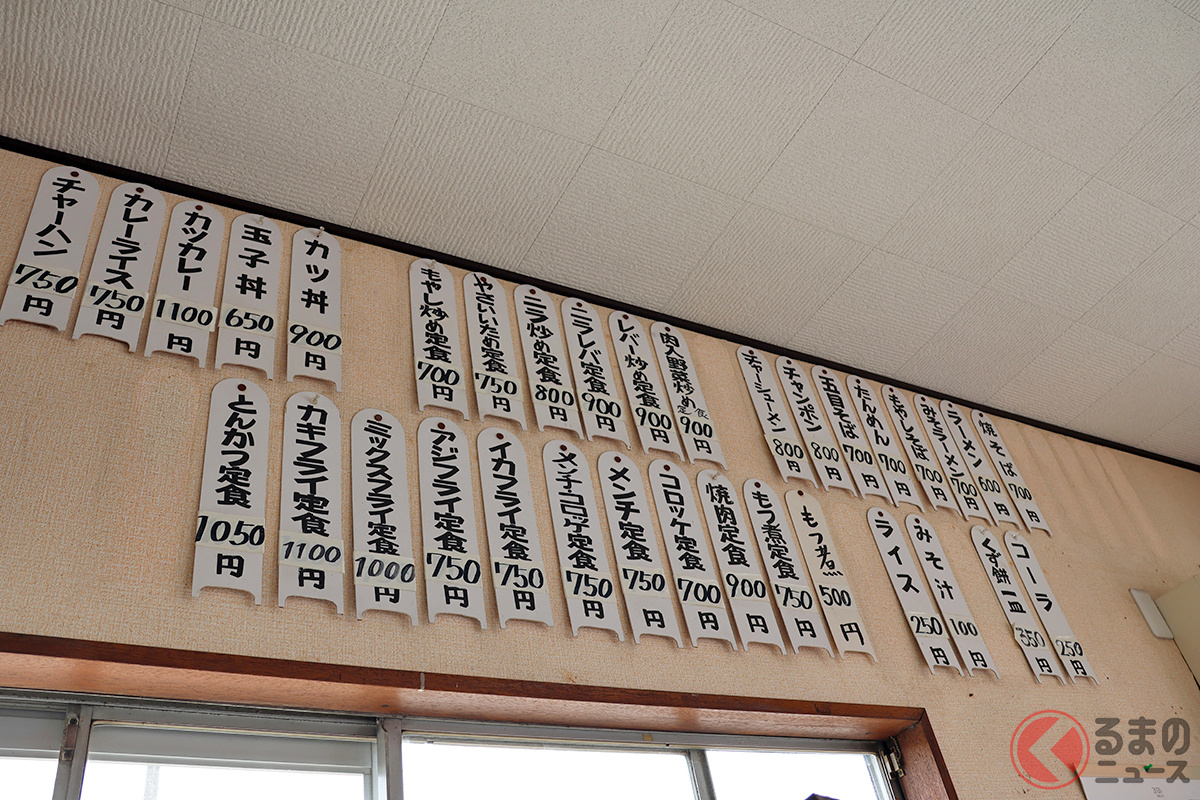 チャーハン 750円
カレーライス 750円
カツカレー 1100円
玉子丼 650円
カツ丼 900円
もやし炒め定食 700円
やさいいため定食 750円
ニラ炒め定食 800円
ニラレバ定食 900円
レバー炒め定食 900円
肉入野菜炒め定食 900円
チャーシューメン 800円
チャンポン 800円
五目そば 700円
たんめん 700円
もやしそば 700円
みそラーメン 700円
ラーメン 600円
焼そば 700円
とんかつ定食 1050円
カキフライ定食 1100円
ミックスフライ定食 1000円
アジフライ定食 750円
イカフライ定食 750円
メンチ・コロッケ定食 750円
メンチ定食 750円
コロッケ定食 700円
焼肉定食 900円
もつ煮定食 750円
もつ煮 500円
ライス 250円
みそ汁 100円
くず餅一皿 350円
コーラ 250円
くるまのニュース